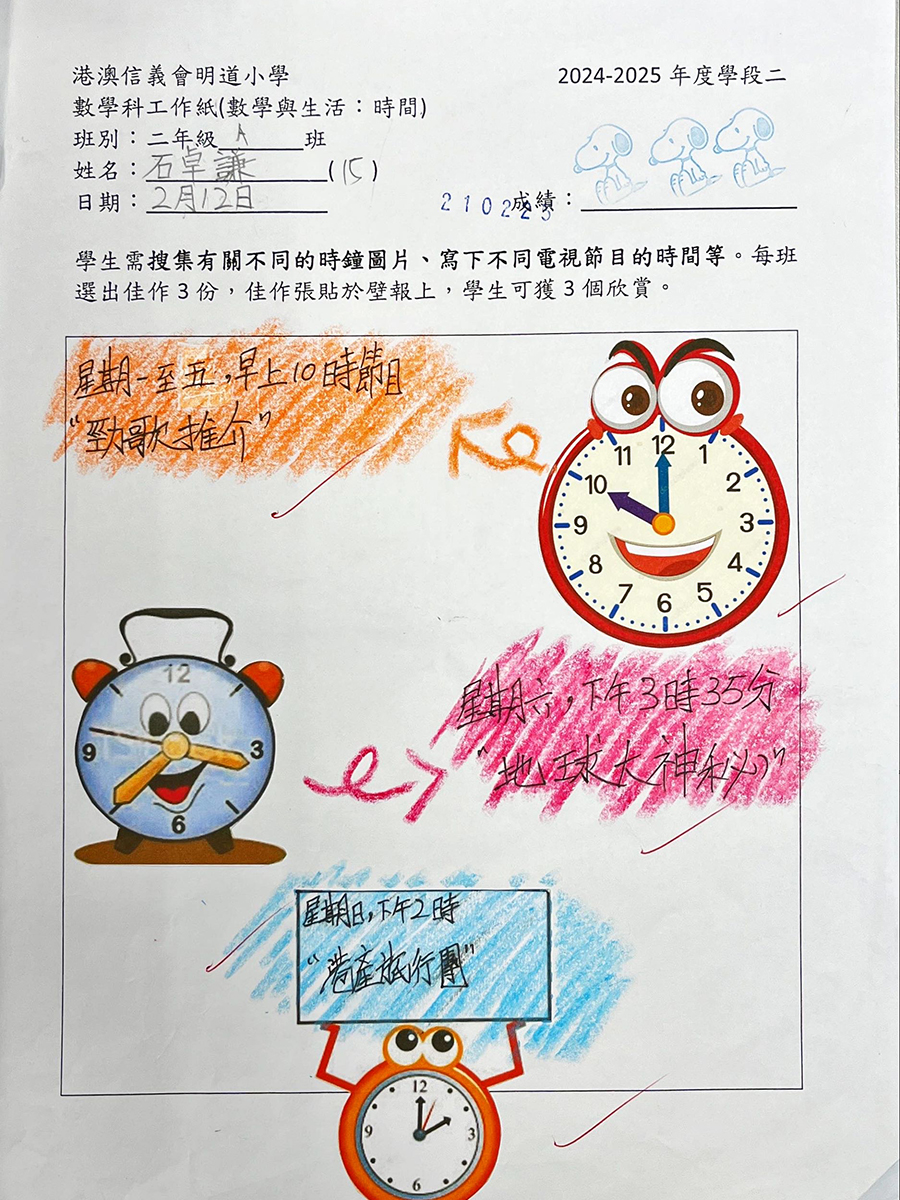 港澳信義會明道小學
2024-2025 年度學段二
數學科工作紙(數學與生活：時間)
班別：二年級 A 班
姓名：石卓謙 (15)
日期：2月12日
210225
成績：
學生需搜集有關不同的時鐘圖片、寫下不同電視節目的時間等。每班
選出佳作 3 份，佳作張貼於壁報上，學生可獲 3 個欣賞。
星期一至五,早上10時節目
"勁歌推介"
12
1
2
3
4
5
6
7
8
9
10
11
12
3
6
9
星期六,下午3時35分
"地球大神秘"
星期日,下午2時
"港產旅行團"
12
3
6
9